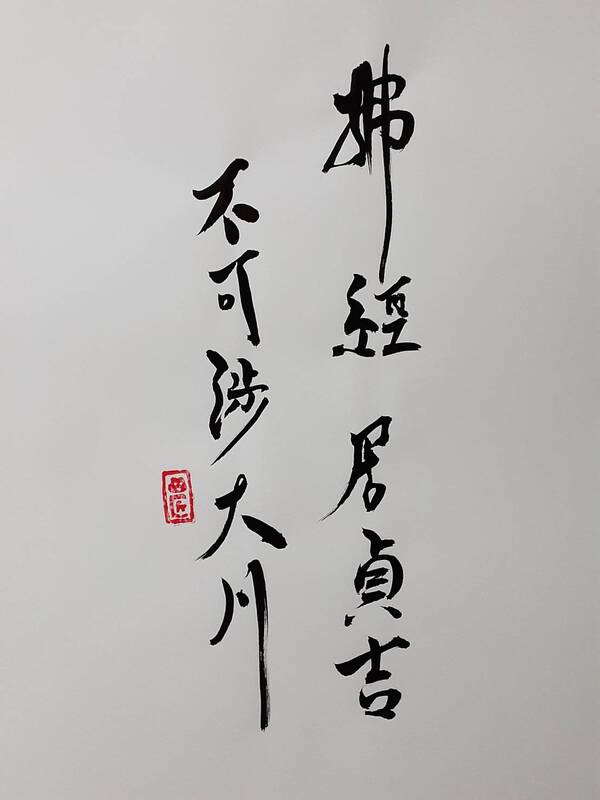 拂經 居貞吉
不可涉大川